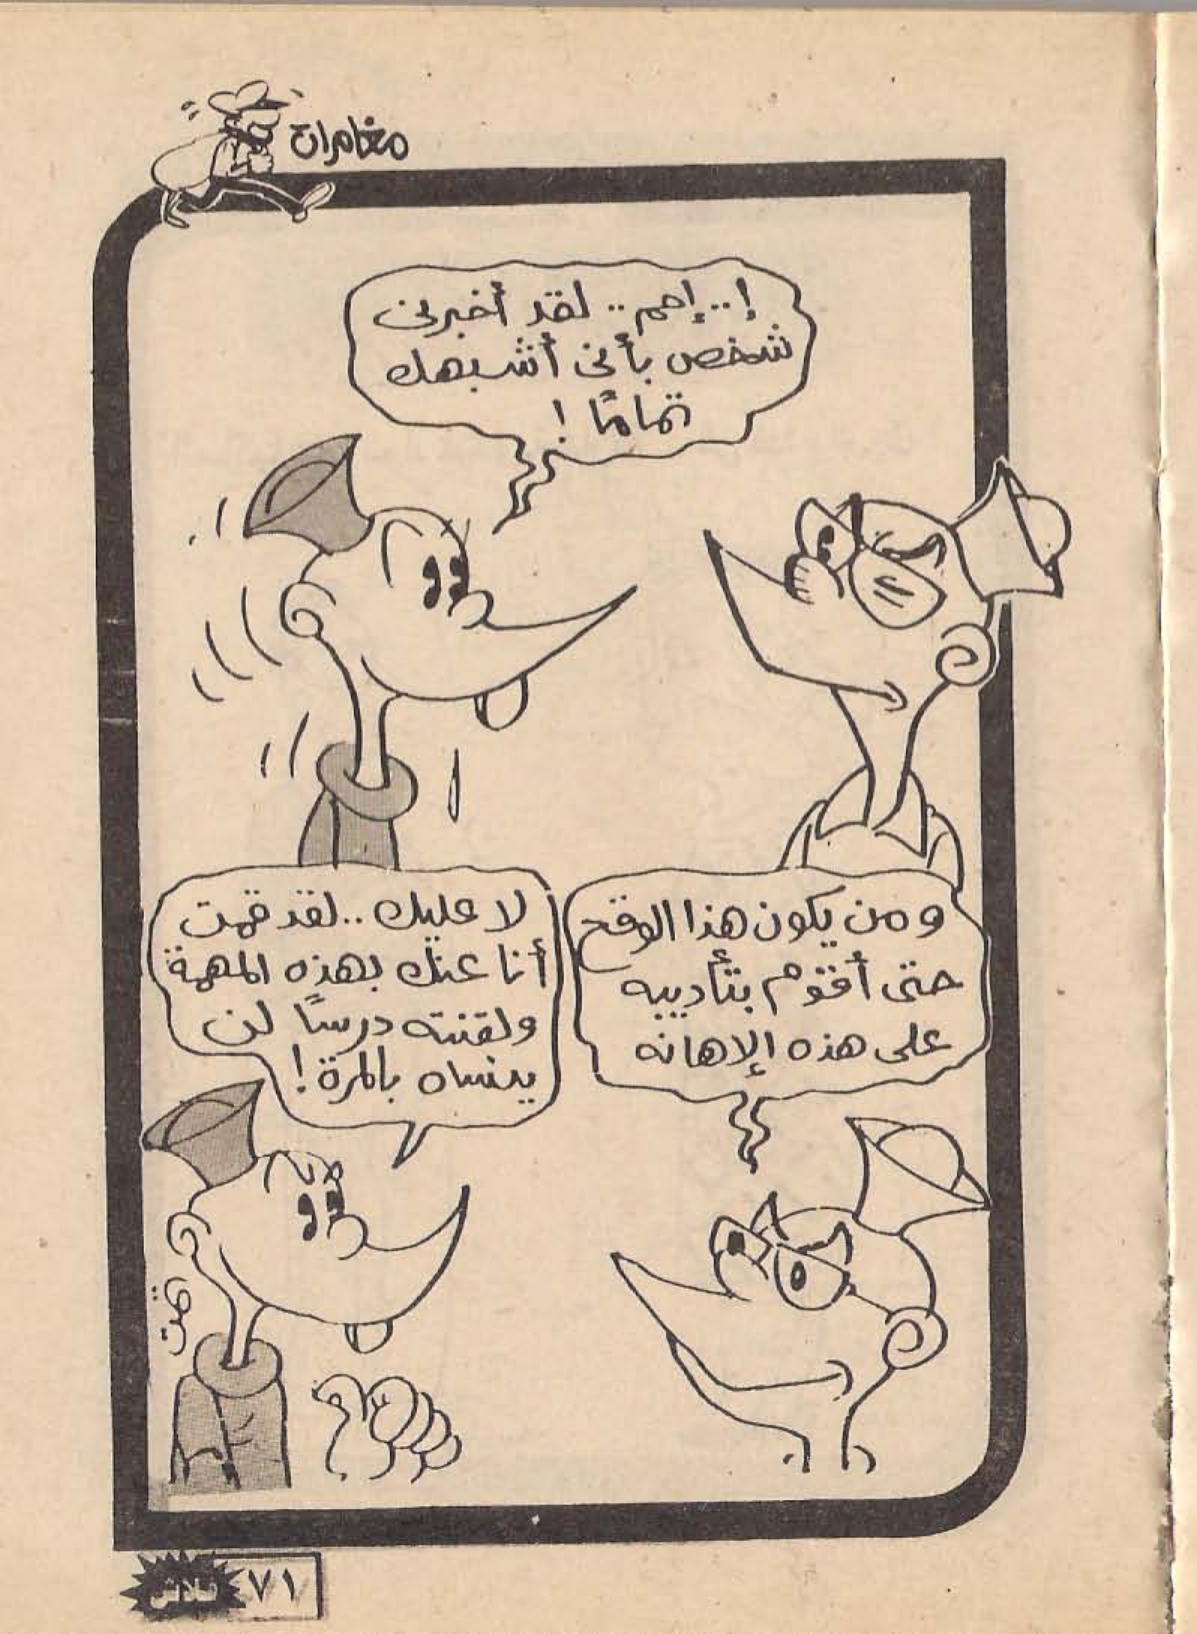 مغامرات
إ..إحم.. لقد أخبرنى
شخص بأنى أشبهك
تمامًا !
ومن يكون هذا الوقح
حتى أقوم بتأديبه
على هذه الإهانه
لا عليك..لقد قمت
أنا عنك بهذه المهمة
ولقنته درسًا لن
ينساه بالمرة !
فلاش ٧١